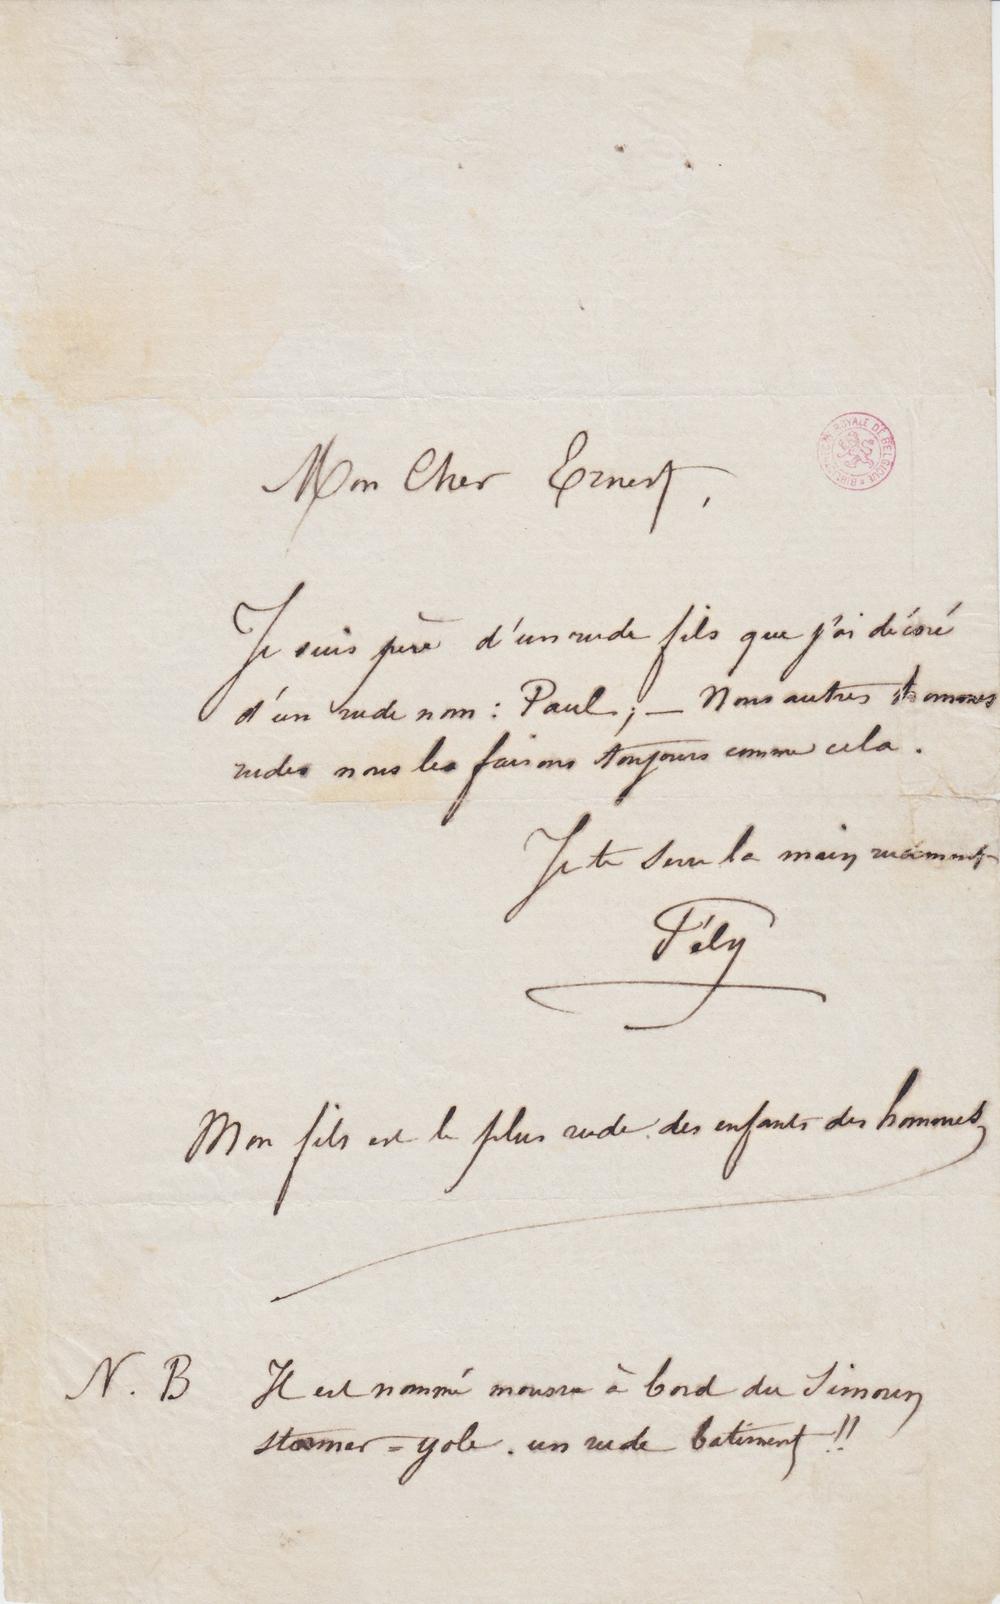 Mon Cher Ernest,
BIB^N ROYALE DE BELGIQUE
Je suis père d'un rude fils que j'ai décoré
d'un rude nom : Paul ; — Nous autres hommes
rudes nous les faisons toujours comme cela .
Je te serre la main rudement
Fély
Mon fils est le plus rude des enfants des hommes
N. B Il est nommé mousse à bord du Simoun
steamer = yole . un rude batiment !!